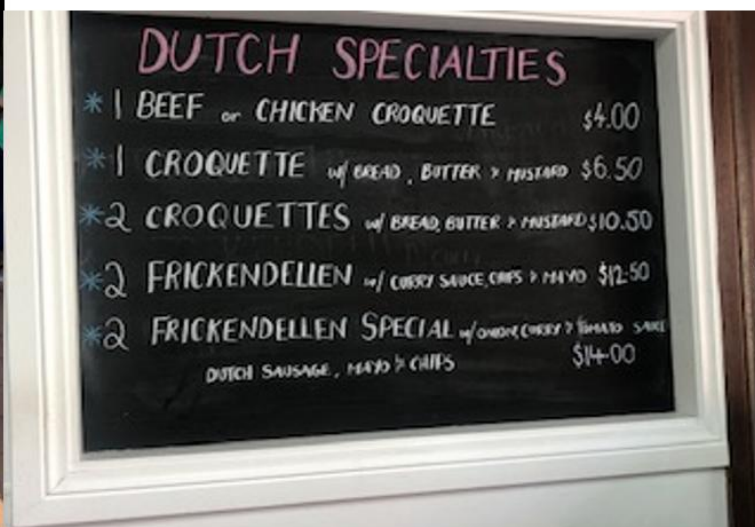 DUTCH SPECIALTIES
* 1 BEEF or CHICKEN CROQUETTE $4.00
* 1 CROQUETTE w/ BREAD, BUTTER & MUSTARD $6.50
* 2 CROQUETTES w/ BREAD, BUTTER & MUSTARD $10.50
* 2 FRICKENDELLEN w/ CURRY SAUCE, CHIPS & MAYO $12.50
* 2 FRICKENDELLEN SPECIAL w/ ONION, CURRY & TOMATO SAUCE
$14.00
DUTCH SAUSAGE, MAYO & CHIPS